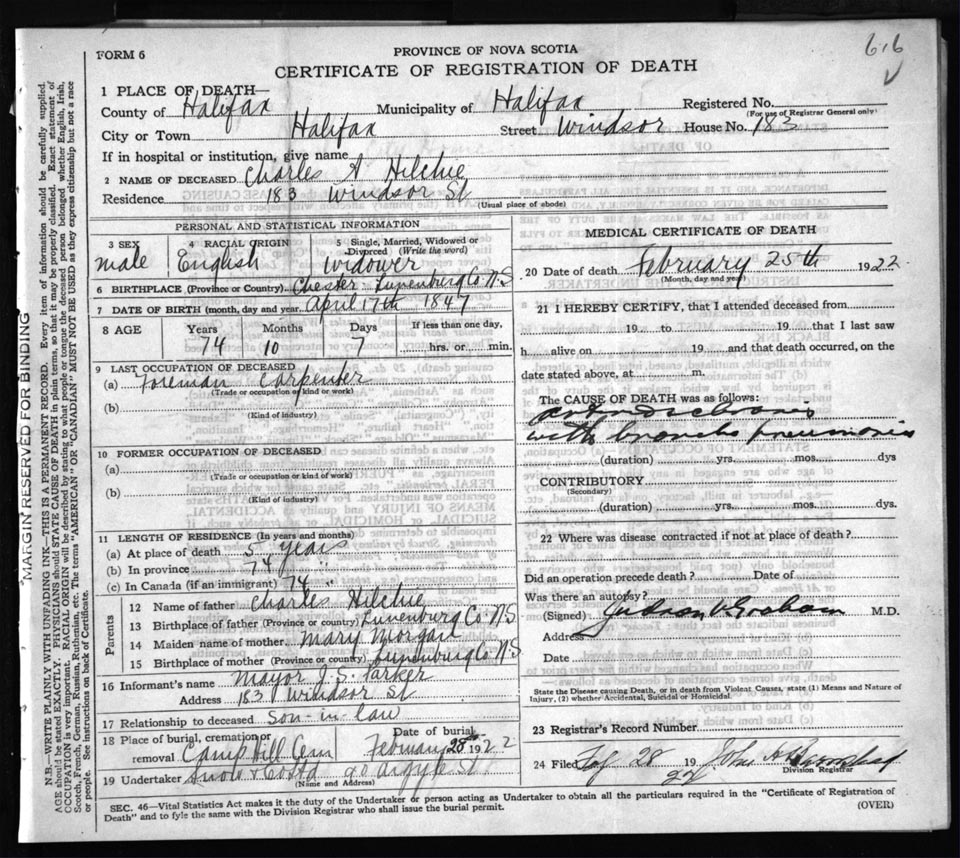 FORM 6
616
PROVINCE OF NOVA SCOTIA
CERTIFICATE OF REGISTRATION OF DEATH
1 PLACE OF DEATH—
County of Halifax Municipality of Halifax Registered No.
(For use of Registrar General only)
City or Town Halifax Street Windsor House No. 183
If in hospital or institution, give name
2 NAME OF DECEASED Charles A Hilchie
Residence 183 Windsor St
(Usual place of abode)
PERSONAL AND STATISTICAL INFORMATION
3 SEX male
4 RACIAL ORIGIN English
5 Single, Married, Widowed or Divorced (Write the word) Widower
6 BIRTHPLACE (Province or Country) Chester Lunenburg Co N.S
7 DATE OF BIRTH (month, day and year) April 17th 1847
8 AGE Years Months Days If less than one day,
74 10 7 hrs. or min.
9 LAST OCCUPATION OF DECEASED
(a) Foreman Carpenter
(Trade or occupation or kind of work)
(b)
(Kind of industry)
10 FORMER OCCUPATION OF DECEASED
(a)
(Trade or occupation or kind of work)
(b)
(Kind of industry)
11 LENGTH OF RESIDENCE (In years and months)
(a) At place of death 5 years
(b) In province 74 "
(c) In Canada (if an immigrant) 74 "
Parents
12 Name of father Charles Hilchie
13 Birthplace of father (Province or country) Lunenburg Co N.S
14 Maiden name of mother Mary Morgan
15 Birthplace of mother (Province or country) Lunenburg Co. N.S
16 Informant's name Mayor J. S. Parker
Address 183 Windsor St
17 Relationship to deceased Son-in law
18 Place of burial, cremation or removal Camp Hill Cem
Date of burial February 28th 1922
19 Undertaker Snow & Co Ltd 90 Argyle St.
(Name and Address)
MEDICAL CERTIFICATE OF DEATH
20 Date of death February 25th 1922
(Month, day and year)
21 I HEREBY CERTIFY, that I attended deceased from
19 to 19 that I last saw
h alive on 19 and that death occurred, on the
date stated above, at m.
The CAUSE OF DEATH was as follows:
with broncho pneumonia
(duration) yrs. mos. dys
CONTRIBUTORY
(Secondary)
(duration) yrs. mos. dys
22 Where was disease contracted if not at place of death?
Did an operation precede death? Date of
Was there an autopsy?
(Signed) Graham M.D.
Address
Date
State the Disease causing Death, or in death from Violent Causes, state (1) Means and Nature of
Injury, (2) whether Accidental, Suicidal or Homicidal.
23 Registrar's Record Number
24 Filed 28 19 22 John
Division Registrar
SEC. 46—Vital Statistics Act makes it the duty of the Undertaker or person acting as Undertaker to obtain all the particulars required in the "Certificate of Registration of
Death" and to fyle the same with the Division Registrar who shall issue the burial permit.
(OVER)
MARGIN RESERVED FOR BINDING
N.B.—WRITE PLAINLY WITH UNFADING INK—THIS IS A PERMANENT RECORD. Every item of information should be carefully supplied.
AGE should be stated EXACTLY. PHYSICIANS should STATE CAUSE OF DEATH in plain terms, so that it may be properly classified. Exact statement of
OCCUPATION is very important. RACIAL ORIGIN will be described by stating to what people or tongue the deceased person belonged whether English, Irish,
Scotch, French, German, Russian, Ruthenian, etc. The terms "AMERICAN" or "CANADIAN" MUST NOT BE USED as they express citizenship but not a race
or people. See instructions on back of Certificate.